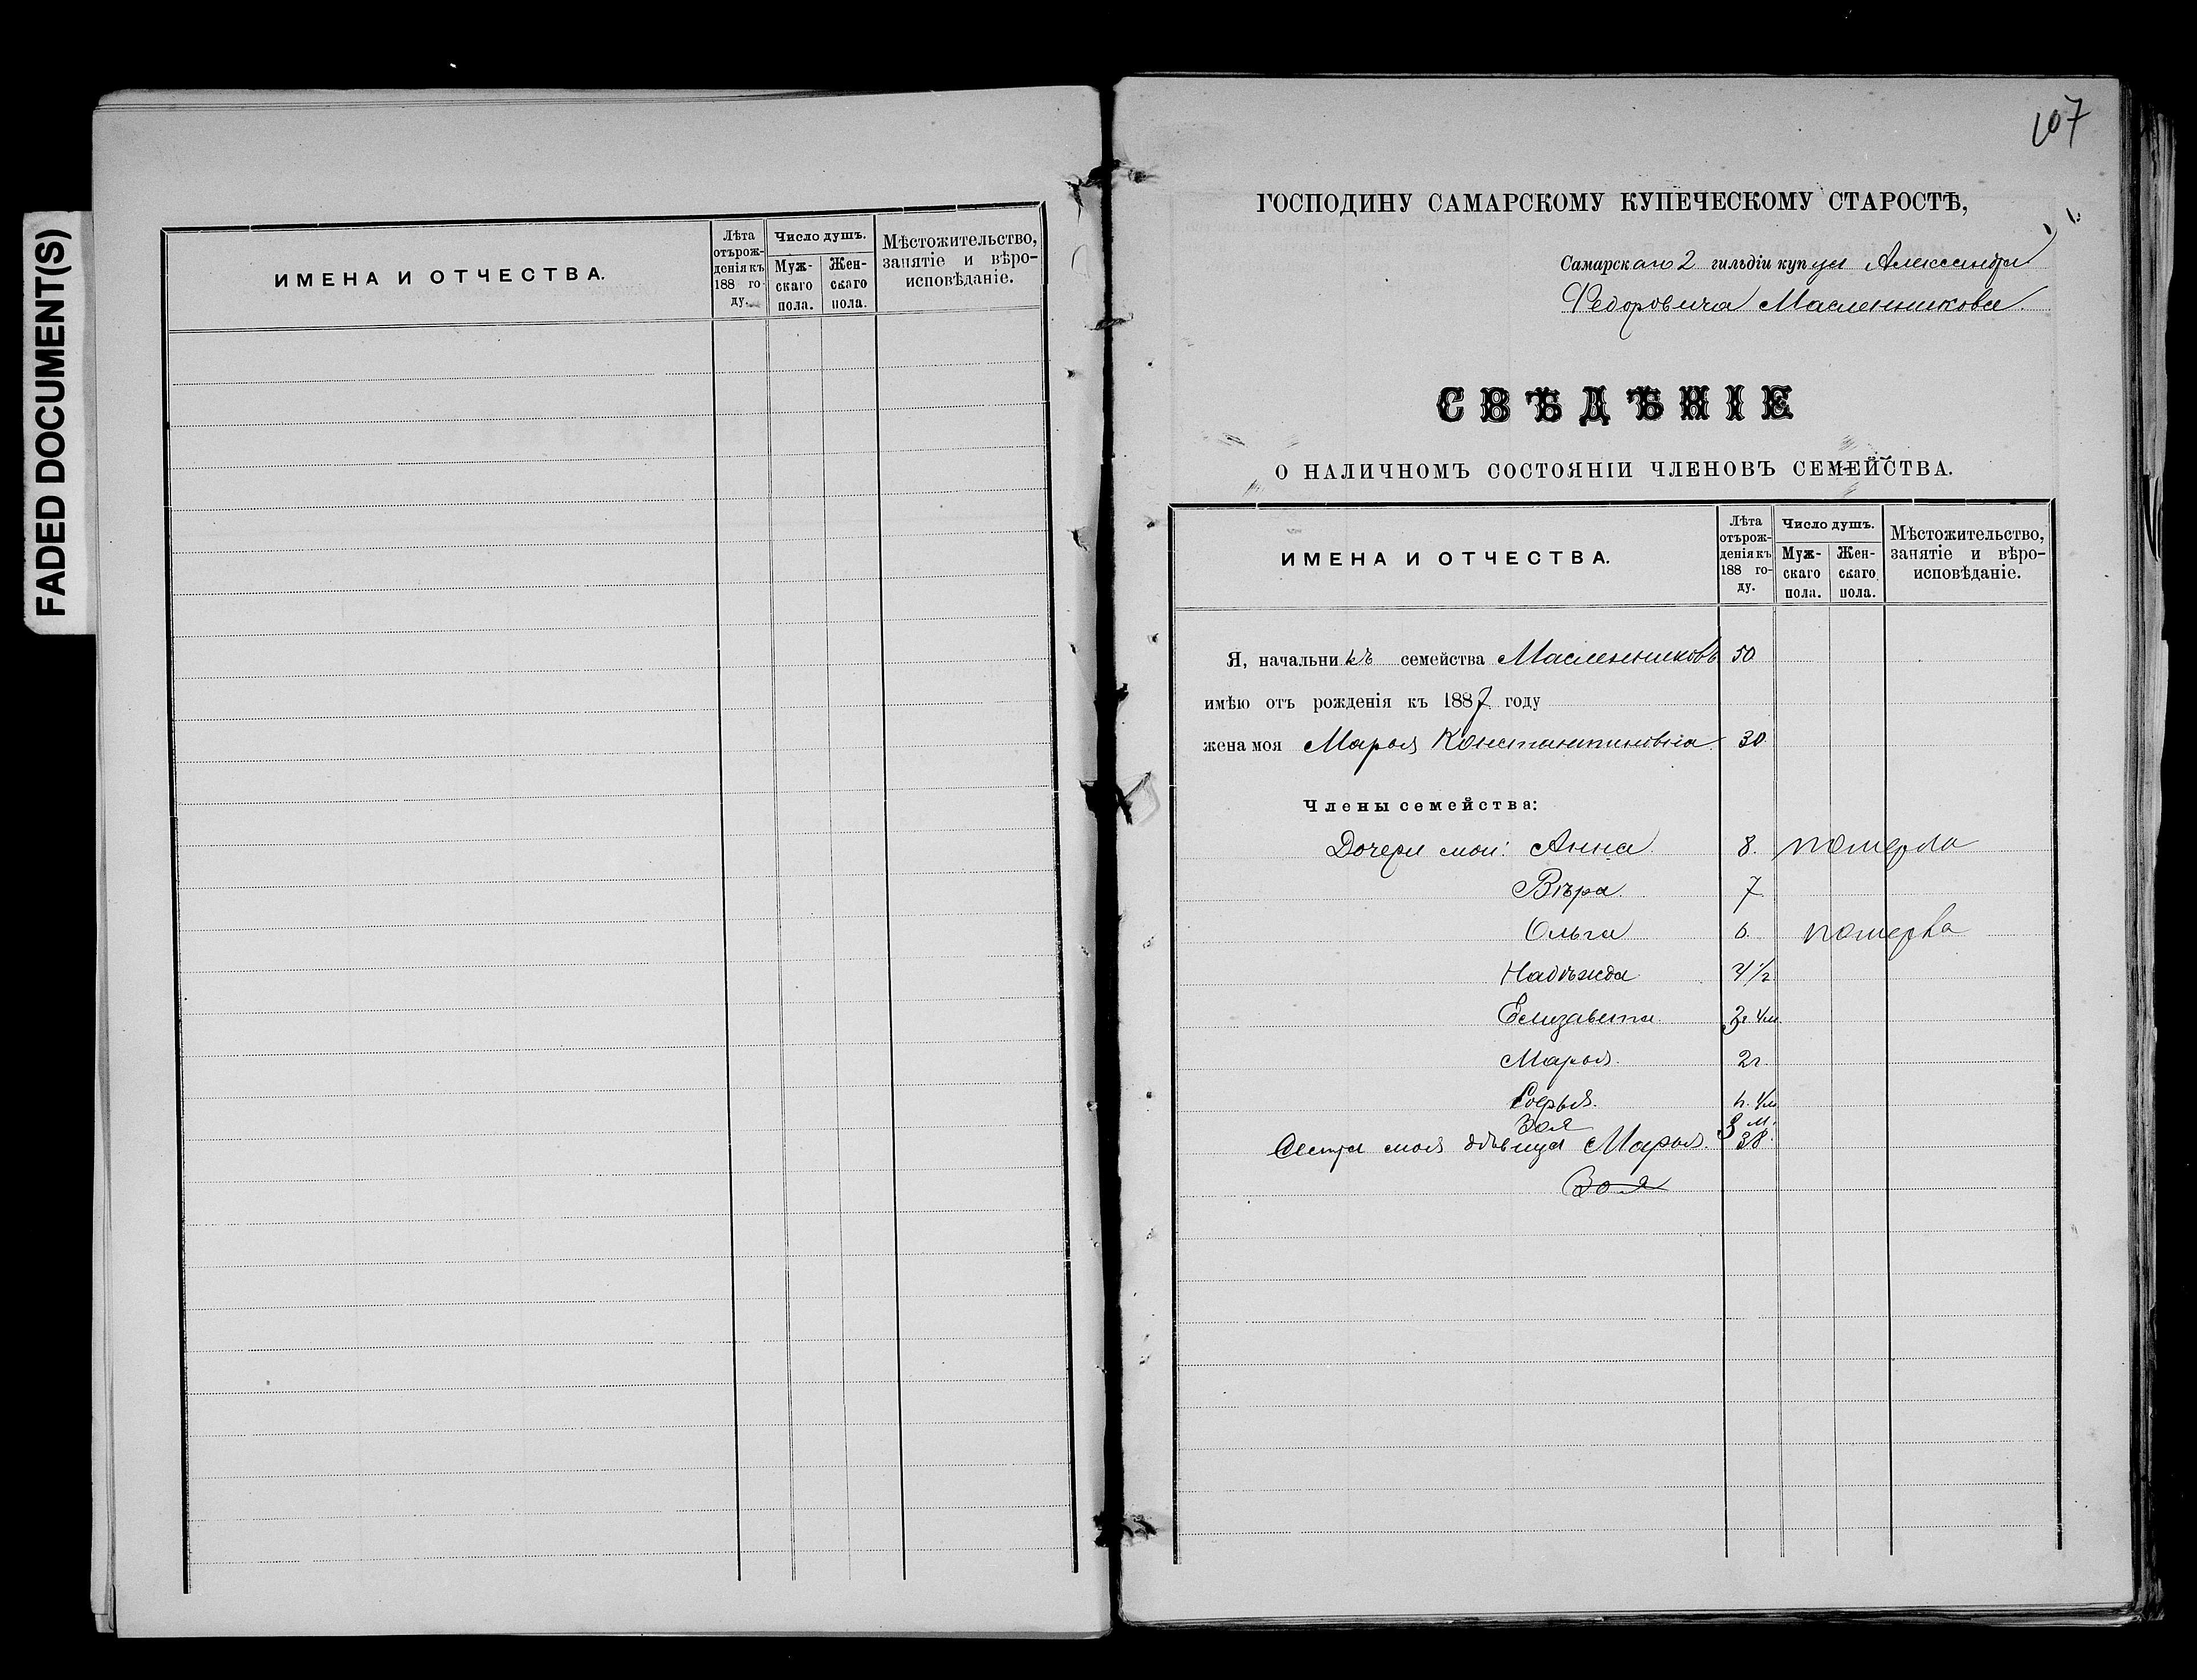 FADED DOCUMENT(S)
ИМЕНА И ОТЧЕСТВА.
Лѣта отърожденія къ 188 году.
Число душъ.
Мужскаго пола.
Женскаго пола.
Мѣстожительство, занятіе и вѣроисповѣданіе.
107
ГОСПОДИНУ САМАРСКОМУ КУПЕЧЕСКОМУ СТАРОСТѢ,
Самарскаго 2 гильдіи купца Александра
Федоровича Масленникова.
СВѢДѢНІЕ
О НАЛИЧНОМЪ СОСТОЯНІИ ЧЛЕНОВЪ СЕМЕЙСТВА.
ИМЕНА И ОТЧЕСТВА.
Лѣта отърожденія къ 188 году.
Число душъ.
Мужскаго пола.
Женскаго пола.
Мѣстожительство, занятіе и вѣроисповѣданіе.
Я, начальникъ семейства Масленниковъ 50
имѣю отъ рожденія къ 1887 году
жена моя Марья Константиновна. 30.
Члены семейства:
Дочери мои: Анна. 8. померла
Вѣра. 7
Ольга 6. померла
Надѣжда 4 1/2
Елизавета. 3г 4м.
Марья. 2г.
Софья. 1г. 4м
Зоя 8 м.
Сестра моя дѣвица Марья. 38.
Зоя